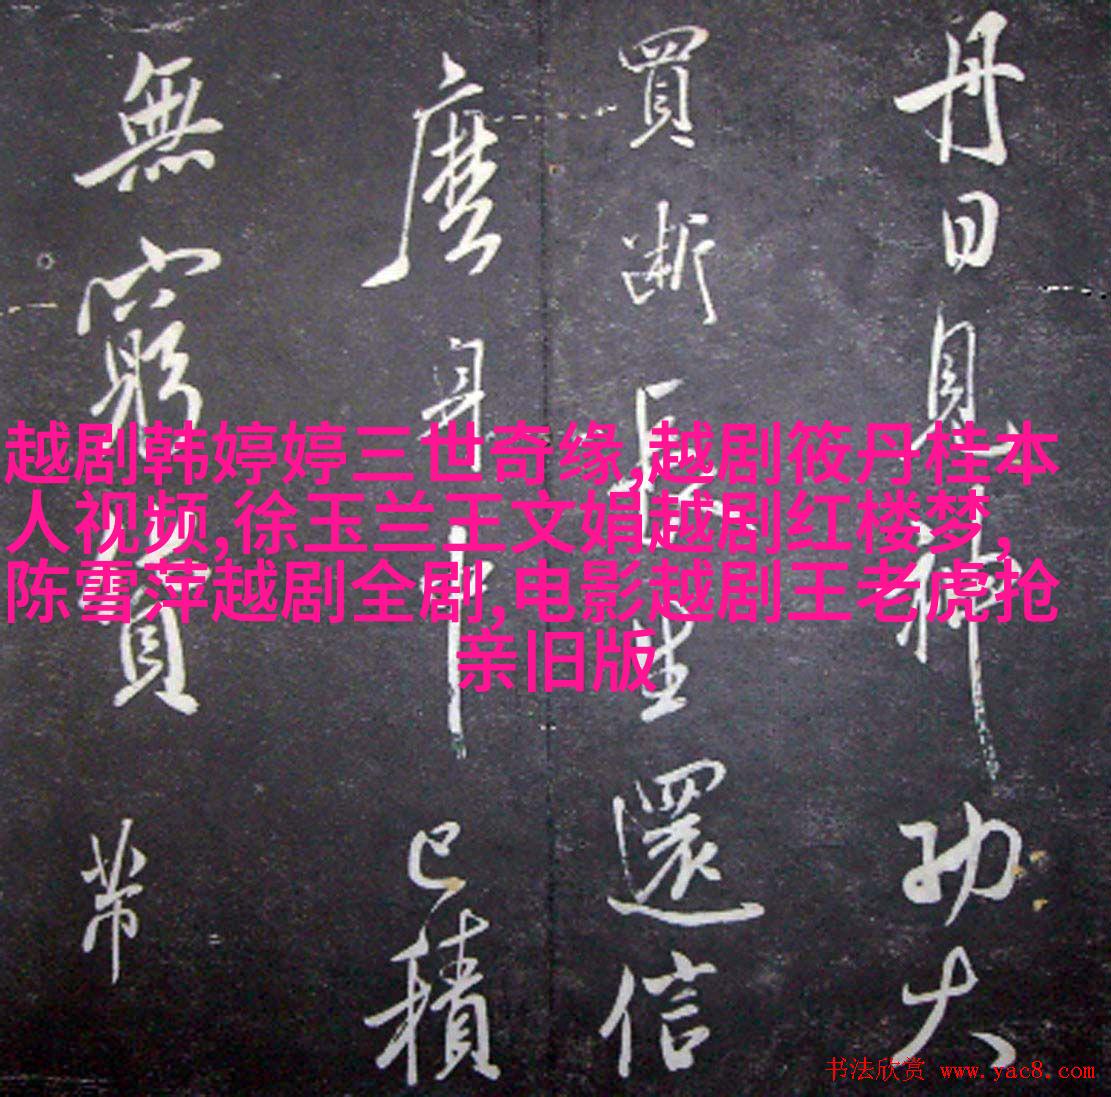 丹日見神功大
買斷長生還信
麽身中已積
無窮貨帶
越剧韩婷婷三世奇缘,越剧筱丹桂本
人视频,徐玉兰王文娟越剧红楼梦,
陈雪萍越剧全剧,电影越剧王老虎抢
亲旧版
书法欣赏 www.yac8.com